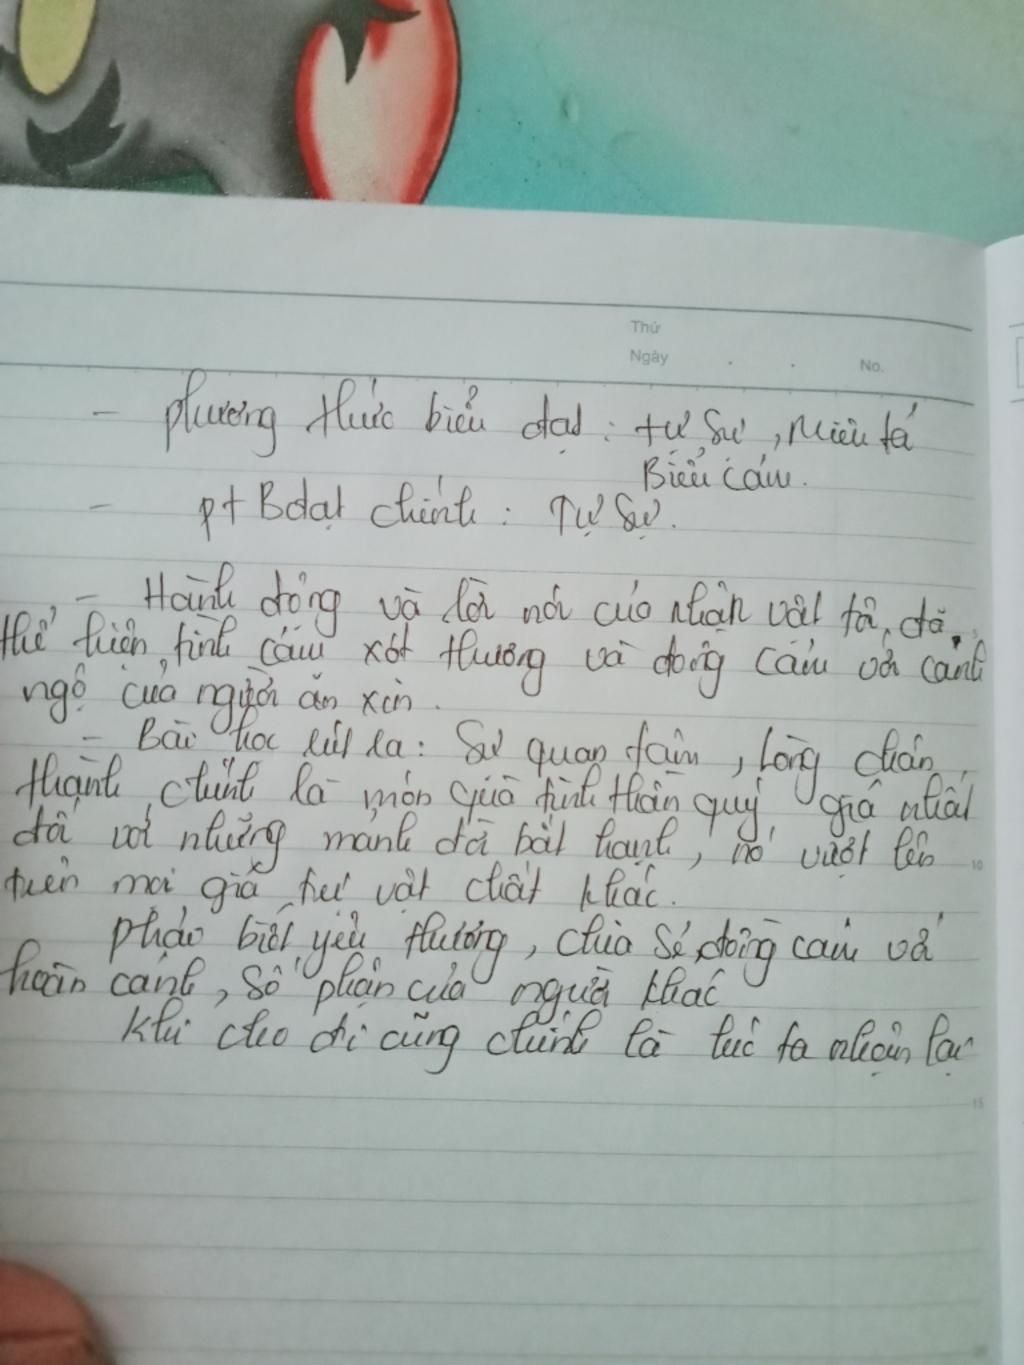 Thứ
Ngày . . No.
- phương thức biểu đạt : tự sự , Miêu tả
Biểu cảm.
- pt Bđạt chính : Tự sự.
- Hành động và lời nói của nhân vật tôi, đã
thể hiện tình cảm xót thương và đồng cảm với cảnh
ngộ của người ăn xin.
- Bài học rút ra : Sự quan tâm , lòng chân
thành chính là món quà tinh thần quý giá nhất
đối với những mảnh đời bất hạnh , nó vượt lên
trên mọi giá trị vật chất khác.
phải biết yêu thương , chia sẻ, đồng cảm với
hoàn cảnh , số phận của người khác
Khi cho đi cũng chính là lúc ta nhận lại
10
15